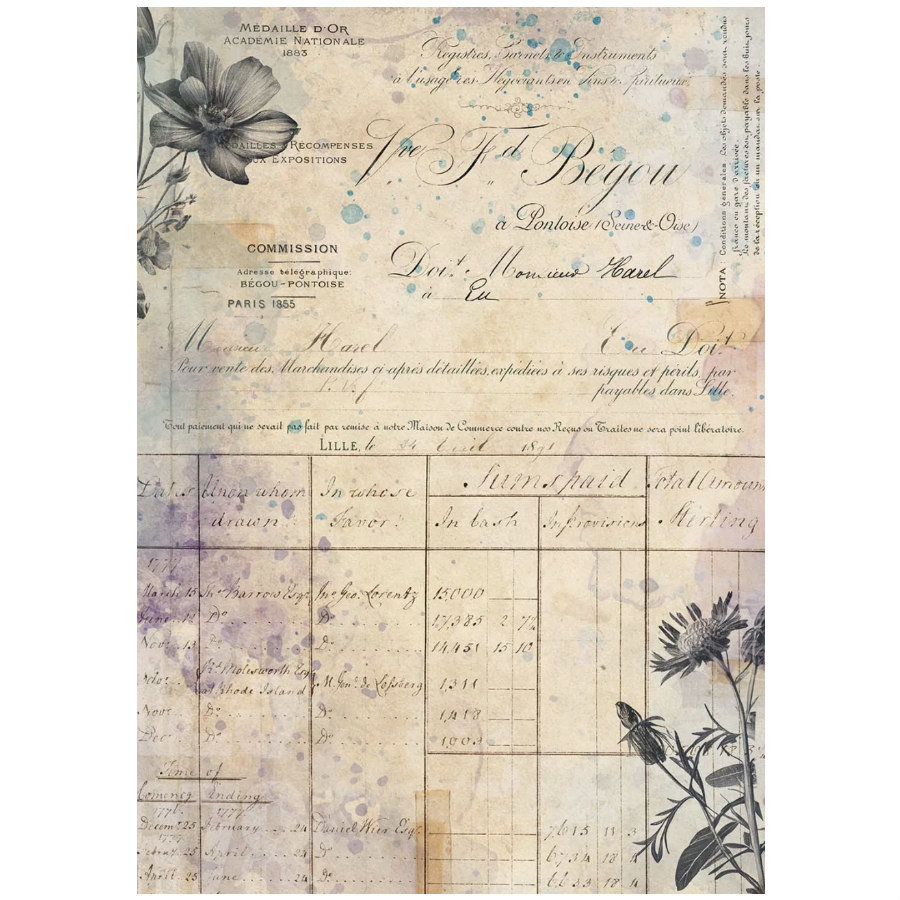 MÉDAILLE D'OR
ACADÉMIE NATIONALE
1883
MÉDAILLES & RÉCOMPENSES
AUX EXPOSITIONS
Registres, Carnets & Instruments
à l'usage des Négociants en Vins & Spiritueux.
Vve. Fd. Bégou
à Pontoise (Seine-&-Oise)
COMMISSION
Adresse télégraphique:
BÉGOU-PONTOISE
PARIS 1855
Doit Monsieur Harel
à Eu
NOTA: Conditions générales Les objets demandés sont rendus
franco en gare d'arrivée.
Le montant des factures est payable dans les huit jours
de la réception en un mandat sur la poste.
Monsieur Harel Eu Doit
Pour vente des Marchandises ci-après détaillées, expédiées à ses risques et périls, par
payables dans Lille.
Tout paiement qui ne serait pas fait par remise à notre Maison de Commerce contre nos Reçus ou Traites ne sera point libératoire.
LILLE, le 24 Avril 1891
Dates Upon whom drawn: In whose Favor: Sums paid Total Amount Sterling
In Cash In provisions
1777
March 15 Jno. Barrow Esqr. Jno. Geo. Lorentz 15,000
June 12 Do. Do. 17,385 2 7½
Novr. 13 Do. Do. 14,451 15 10
Rt. Molesworth Esqr.
at Rhode Island M. Genl. de Lossberg 1,311
Novr. Do. Do. 1,418
Decr. Do. Do. 1,903
Time of
Comencg. Ending
1776 1777
Decemr. 25 February 24 Daniel Wier Esqr. 7615 11 3
1777
Febry. 25 April 24 Do. 6734 18
April 25 June 24 Do. 18